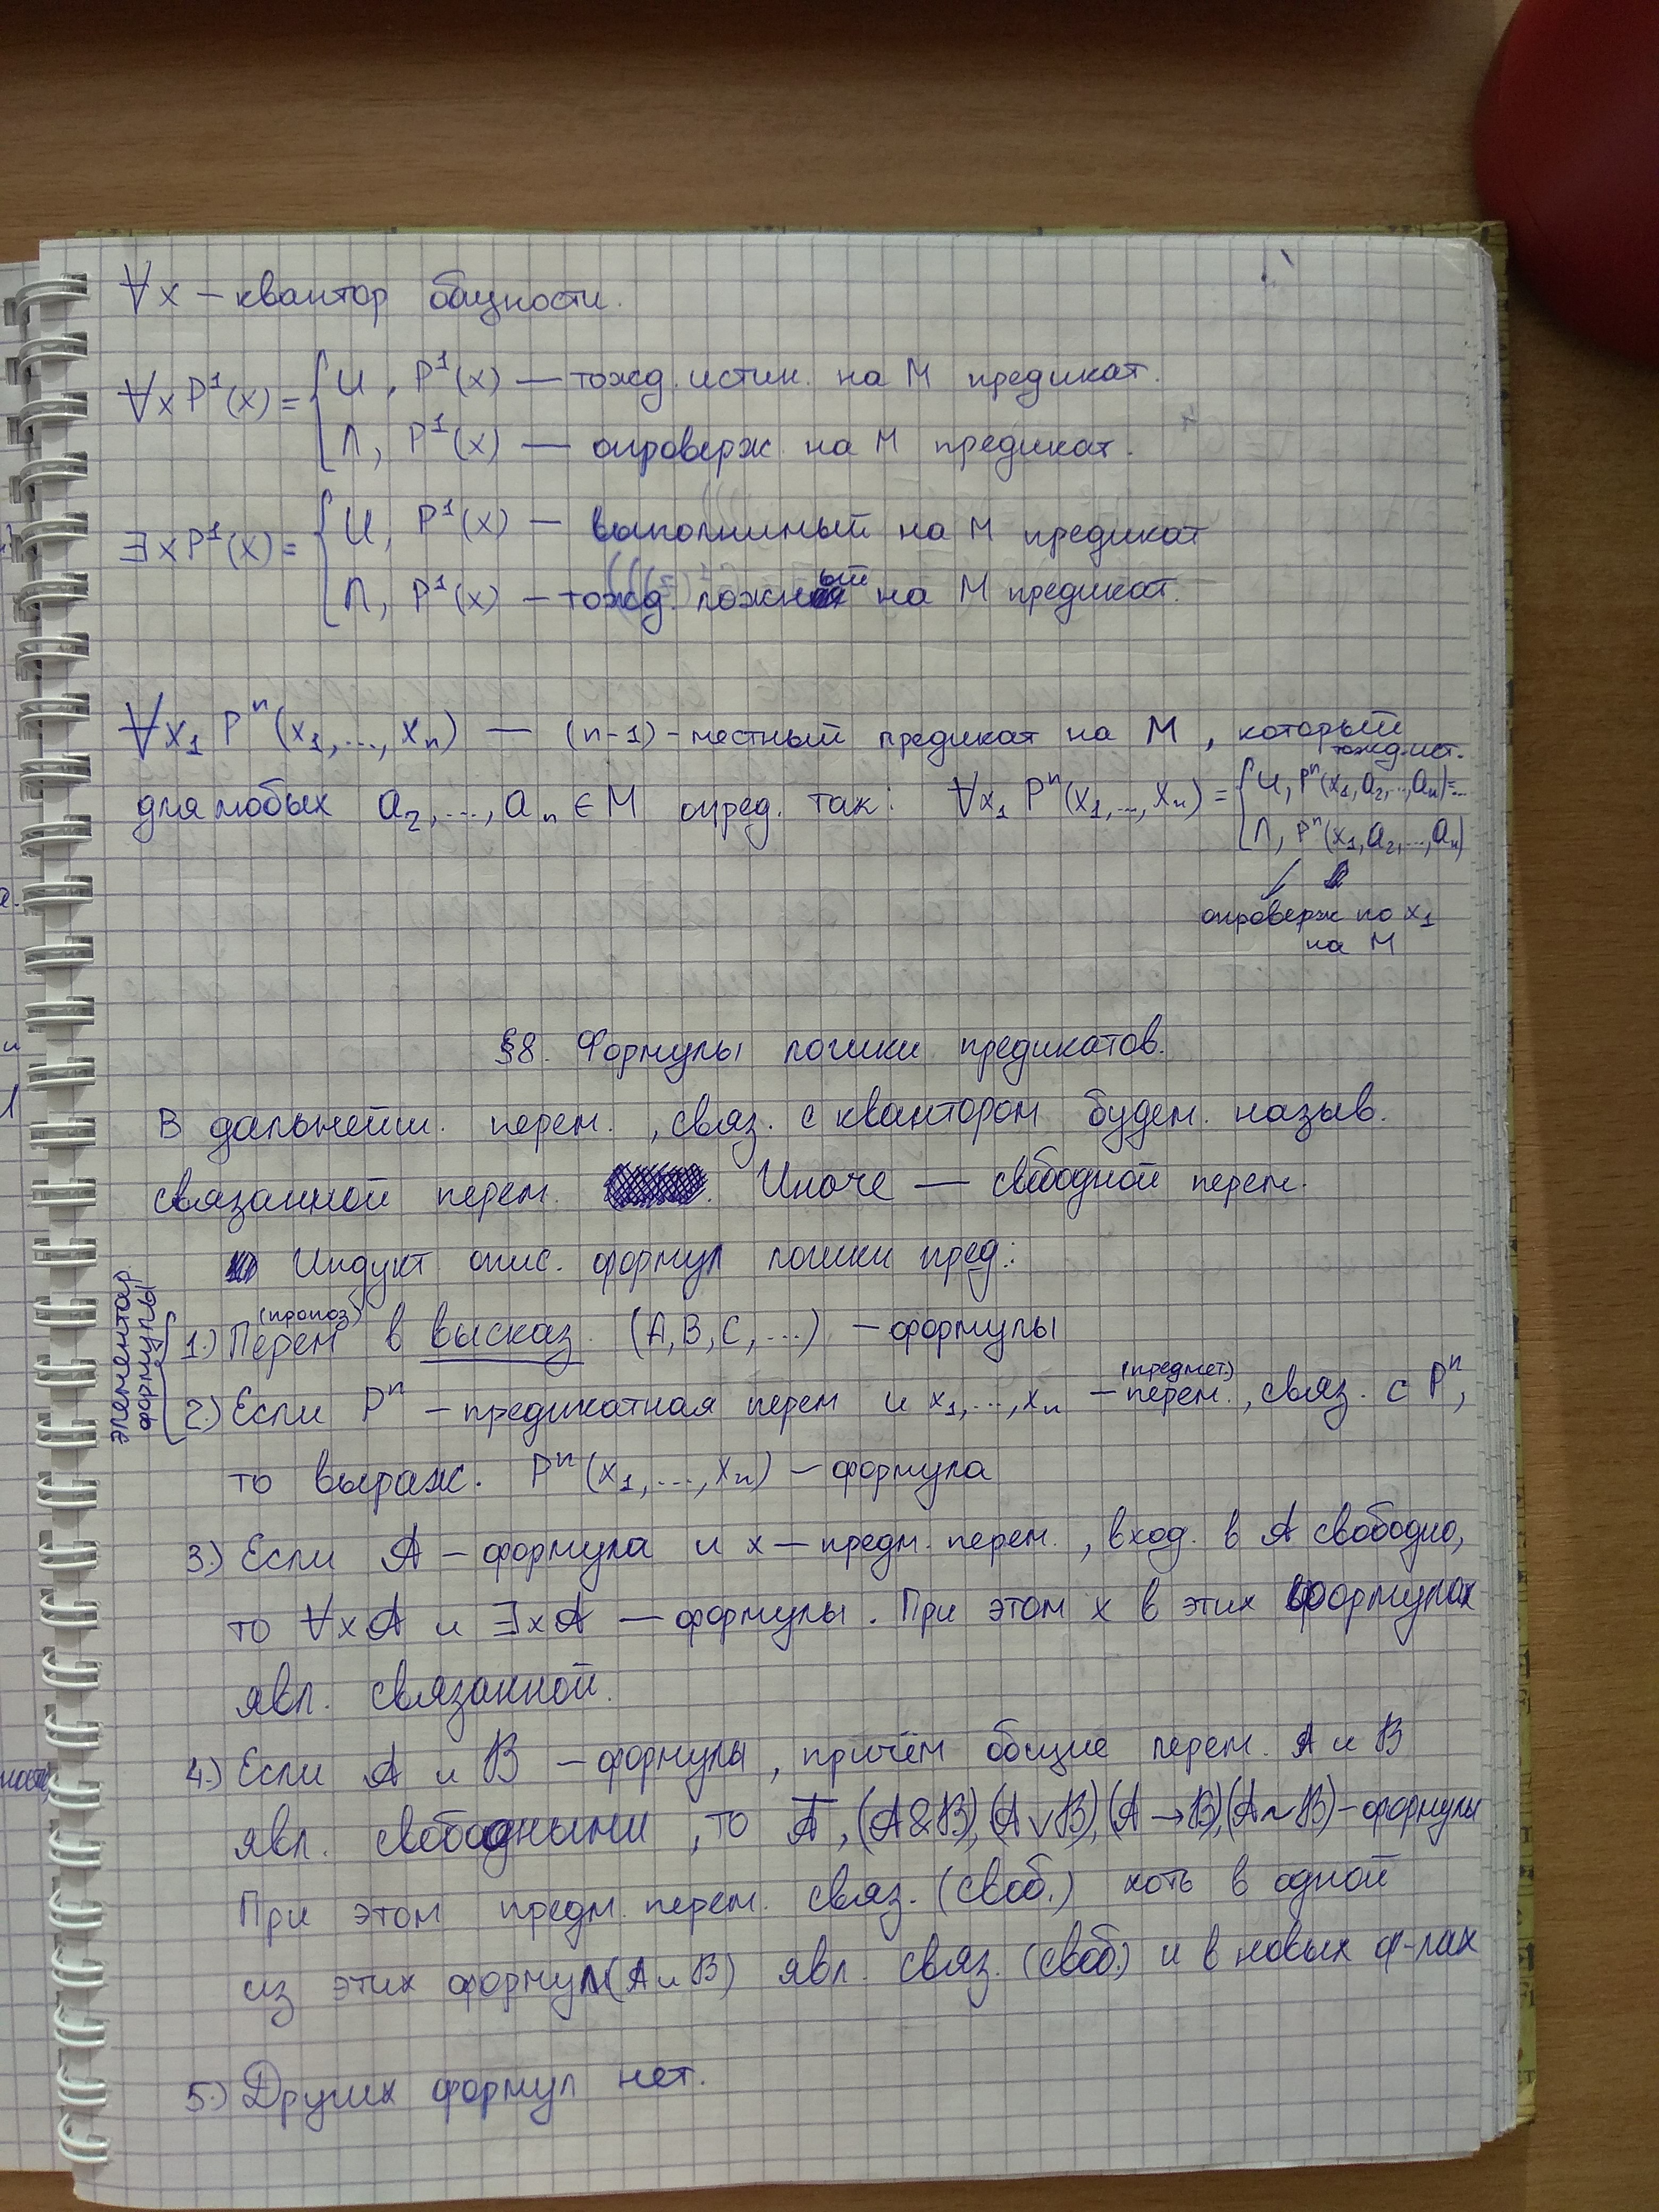 ∀x – квантор общности.
∀x P¹(x) = { И, P¹(x) — тожд. истин. на М предикат.
Л, P¹(x) — опроверж. на М предикат.
∃x P¹(x) = { И, P¹(x) — выполнимый на М предикат
Л, P¹(x) – тожд. ложный на М предикат.
∀x₁ Pⁿ(x₁,...,xₙ) — (n-1)-местный предикат на М, который
для любых a₂,...,aₙ ∈ M опред. так: ∀x₁ Pⁿ(x₁,...,xₙ) = { И, Pⁿ(x₁,a₂,...,aₙ)=... тожд. ист.
Л, Pⁿ(x₁,a₂,...,aₙ)
опроверж по x₁
на М
§8. Формулы логики предикатов.
В дальнейш. перем., связ. с квантором будем. назыв.
связанной перем. Иначе — свободной перем.
Индукт опис. формул логики пред:
элементар
формулы
1.) Перем (пропоз) в высказ. (А, В, С, ...) – формулы
2.) Если Pⁿ – предикатная перем и x₁,...,xₙ – перем. (предмет.), связ. с Pⁿ,
то выраж. Pⁿ(x₁,...,xₙ) – формула
3.) Если A – формула и x – предм. перем., вход. в A свободно,
то ∀xA и ∃xA — формулы. При этом x в этих формулах
явл. связанной.
4.) Если A и B – формулы, причём общие перем. A и B
явл. свободными, то A̅, (A&B), (A∨B), (A→B), (A∼B) – формулы
При этом предм. перем. связ. (своб.) хоть в одной
из этих формул (A и B) явл. связ. (своб.) и в новых ф-лах
5.) Других формул нет.